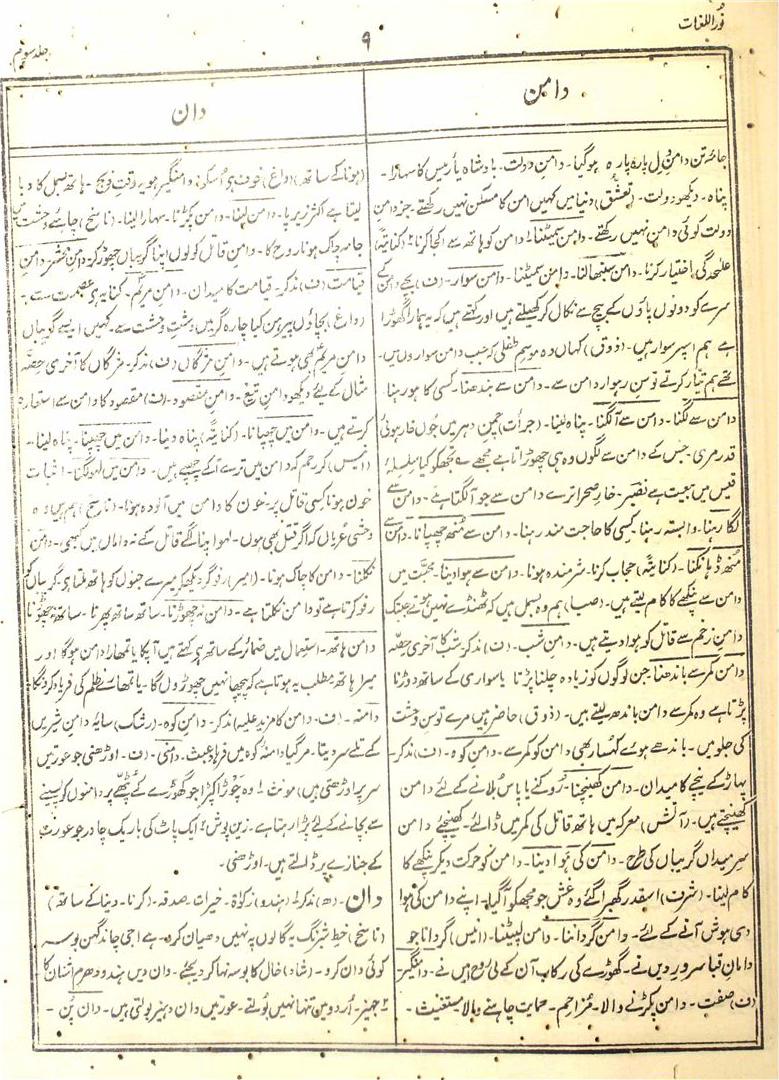 نور اللغات
۹
جلد سوم
دامن
جائز تن دامنِ دل پارہ پارہ ہوگیا۔ دامنِ دولت۔ بادشاہ یا رئیس کا سہارا۔
پناہ۔ دیکھو دولت۔ (تعشق) دنیا میں کہیں امن کا مسکن نہیں رکھتے۔ جز دامنِ
دولت کوئی دامن نہیں رکھتے۔ دامن سمیٹنا۔ دامن کو ہاتھ سے اکجا کرنا۔ (کنایۃً)
علٰحدگی اختیار کرنا۔ دامن سنبھالنا۔ دامن سمیٹنا۔ دامن سوار۔ (ف) بچے دامن کے
سرے کو دونوں پاؤں کے بیچ سے نکال کر کھیلتے ہیں اور کہتے ہیں کہ یہ ہمارا گھوڑا
ہے ہم اسپر سوار ہیں۔ (ذوق) کہاں وہ موسمِ طفلی کہ جب دامن سواروں میں۔
تھے ہم تیار کرتے توسنِ رہوار دامن سے۔ دامن سے بندھنا۔ کسی کا ہو رہنا
دامن سے لگنا۔ دامن سے آلگنا۔ پناہ لینا۔ (جرأت) چمنِ دہر میں جوں خار ہوئی
قدر مری۔ جس کے دامن سے لگوں وہ ہی چھوڑاتا ہے مجھے
قیس میں بیعت ہے نصیر۔ خارِ صحرا ترے دامن سے جو آلگتا ہے۔ دامن سے
لگا رہنا۔ وابستہ رہنا۔ کسی کا حاجت مند رہنا۔ دامن سے منھ چھپانا۔ دامن سے
مُنھ ڈھانکنا۔ (کنایۃً) حجاب کرنا۔ شرمندہ ہونا۔ دامن سے ہوا دینا۔ محبّت میں
دامن سے پنکھے کا کام لیتے ہیں۔ (صبا) ہم وہ بسمل ہیں کہ ٹھنڈے نہیں ہوتے جبتک
دامنِ زخم سے قاتل کو ہوا دیتے ہیں۔ دامنِ شب۔ (ف) مذکر۔ شب کا آخری حصّہ
دامن کمر سے باندھنا۔ جن لوگوں کو زیادہ چلنا پڑتا یا سواری کے ساتھ دوڑنا
پڑتا ہے وہ کمر سے دامن باندھ لیتے ہیں۔ (ذوق) حاضر ہیں مرے توسنِ وحشت
کی جلو میں۔ باندھے ہوئے کہسار بھی دامن کو کمر سے۔ دامنِ کوہ۔ (ف) مذکر۔
پہاڑ کے نیچے کا میدان۔ دامن کھینچنا۔ روکنے یا پاس بلانے کے لئے دامن
کھینچتے ہیں۔ (آتش) معرکہ میں ہاتھ قاتل کی کمر میں ڈالئے۔ کھینچئے دامن
سرِ میداں گریباں کی طرح۔ دامن کی ہوا دینا۔ دامن کو حرکت دیکر پنکھے کا
کام لینا۔ (شرف) اسقدر گھبرا گئے وہ غش جو مجھکو آگیا۔ اپنے دامن کی ہوا
دی ہوش آنے کے لئے۔ دامن گرداننا۔ دامن لپیٹنا۔ (انیس) گردانا جو
دامانِ قبا سرورِ دیں نے۔ گھوڑے کی رکاب آن کے لی رُوحِ میں نے۔ دامنگیر۔
(ف) صفت۔ دامن پکڑنے والا۔ مُزاحم۔ حمایت چاہنے والا مستغیث۔
دان
(ہونا کے ساتھ) (داغ) خون دامنگیر ہو یہ وقتِ ذبح۔ ہاتھ بسمل کا دبا
لیتا ہے اکثر زیرِ پا۔ دامن لینا۔ دامن پکڑنا۔ سہارا لینا۔ (ناسخ) چاہئے وحشت میں
جامہ چاک ہونا روح کا۔ دامنِ قاتل کو لوں اپنا گریباں چھوڑ کر۔ دامنِ محشر۔ دامنِ
قیامت (ف) مذکر۔ قیامت کا میدان۔ دامنِ مریم۔ کنایہ ہے عصمت سے۔
(داغ) بچاؤں پیرہن کیا چارہ گر میں دستِ وحشت سے۔ کہیں ایسے گریباں
دامنِ مریم بھی ہوتے ہیں۔ دامنِ مژگاں (ف) مذکر۔ مژگاں کا آخری حصّہ
مثال کے لئے دیکھو دامنِ تیغ۔ دامنِ مقصود۔ (ف) مقصود کا دامن سے استعارہ
کرتے ہیں۔ دامن میں چھپانا۔ (کنایۃً) پناہ دینا۔ دامن میں چھپنا۔ پناہ لینا۔
(انیس) کر رحم کہ دامن میں ترے آکے چھپے ہیں۔ دامن میں لہو لگنا۔ اثبات
خون ہونا کسی قاتل پر۔ خون کا دامن میں آلودہ ہونا۔ (ناسخ) ہم ہیں وہ
وحشی عُریاں کہ اگر قتل بھی ہوں۔ لہو اپنا لگے قاتل کے نہ داماں میں کبھی۔ دامن
نکلنا۔ دامن کا چاک ہونا۔ (امیر) رفوگر دیکھکر میرے جنوں کو ہاتھ ملتا ہے۔ گریباں کو
رفو کرتا ہے تو دامن نکلتا ہے۔ دامن نہ چھوڑنا۔ ساتھ ساتھ پھرنا۔ ساتھ نہ چھوڑنا
دامن ہاتھ۔ استعمال میں ضمائر کے ساتھ ہے کہتے ہیں آپکا یا تمھارا دامن ہوگا اور
میرا ہاتھ مطلب یہ ہوتا ہے کہ پیچھا نہیں چھوڑوں گا۔ یا تمھارے ظلم کی فریاد کرونگا
دامنہ۔ (ف۔ دامن کا مزید علیہ) مذکر۔ دامنِ کوہ۔ (رشک) سایۂ دامنِ شیریں
کے تلے سر دیتا۔ مرگیا دامنۂ کوہ میں فرہاد عبث۔ دامنی۔ (ف۔ اوڑھنی جو عورتیں
سر پر اوڑھتی ہیں) مونث ۱ وہ چَوڑا کپڑا جو گھوڑے کے پٹھے پر دامنوں کو پسینے
سے بچانے کے لئے پڑا رہتا ہے۔ زین پوش ۲ ایک پاٹ کی باریک چادر جو عورت
کے جنازے پر ڈالتے ہیں۔ اوڑھنی۔
دان۔ (ھ) مذکر ۱ (ہندو) زکوٰۃ۔ خیرات۔ صدقہ۔ (کرنا۔ دینا کے ساتھ)
(ناسخ) خط شبرنگ یہ گالوں پہ نہیں دھیان کرو۔ ہے اجی چاند گہن بوسہ
کوئی دان کرو۔ (شاد) خال کا بوسہ نہا کر دیجئے۔ دان دیں ہندو دھرم اشنان کا
۲ جہیز۔ اُردو میں تنہا نہیں بولتے۔ عورتیں دان دہیز بولتی ہیں۔ دان پُن۔